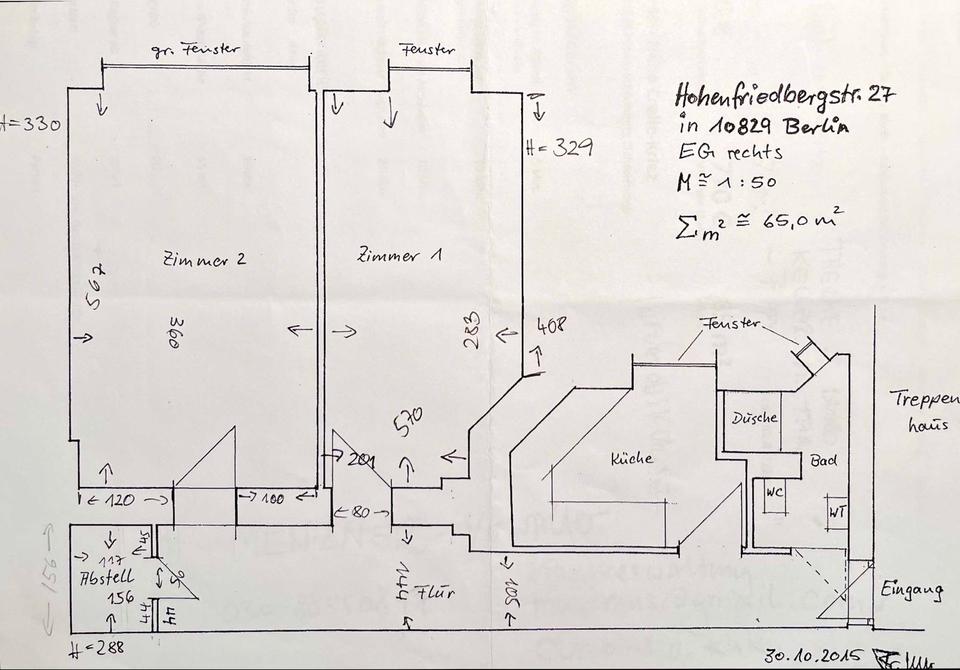 gr. Fenster
Fenster
Hohenfriedbergstr. 27
in 10829 Berlin
EG rechts
M ≅ 1:50
Σm² ≅ 65,0 m²
H=330
H=329
Zimmer 2
Zimmer 1
567
360
283
408
570
201
120
100
80
Fenster
Treppen
haus
Dusche
Küche
Bad
WC
WT
Eingang
156
117
45
Abstell
156
56
44
44
144
Flur
105
H=288
30.10.2015